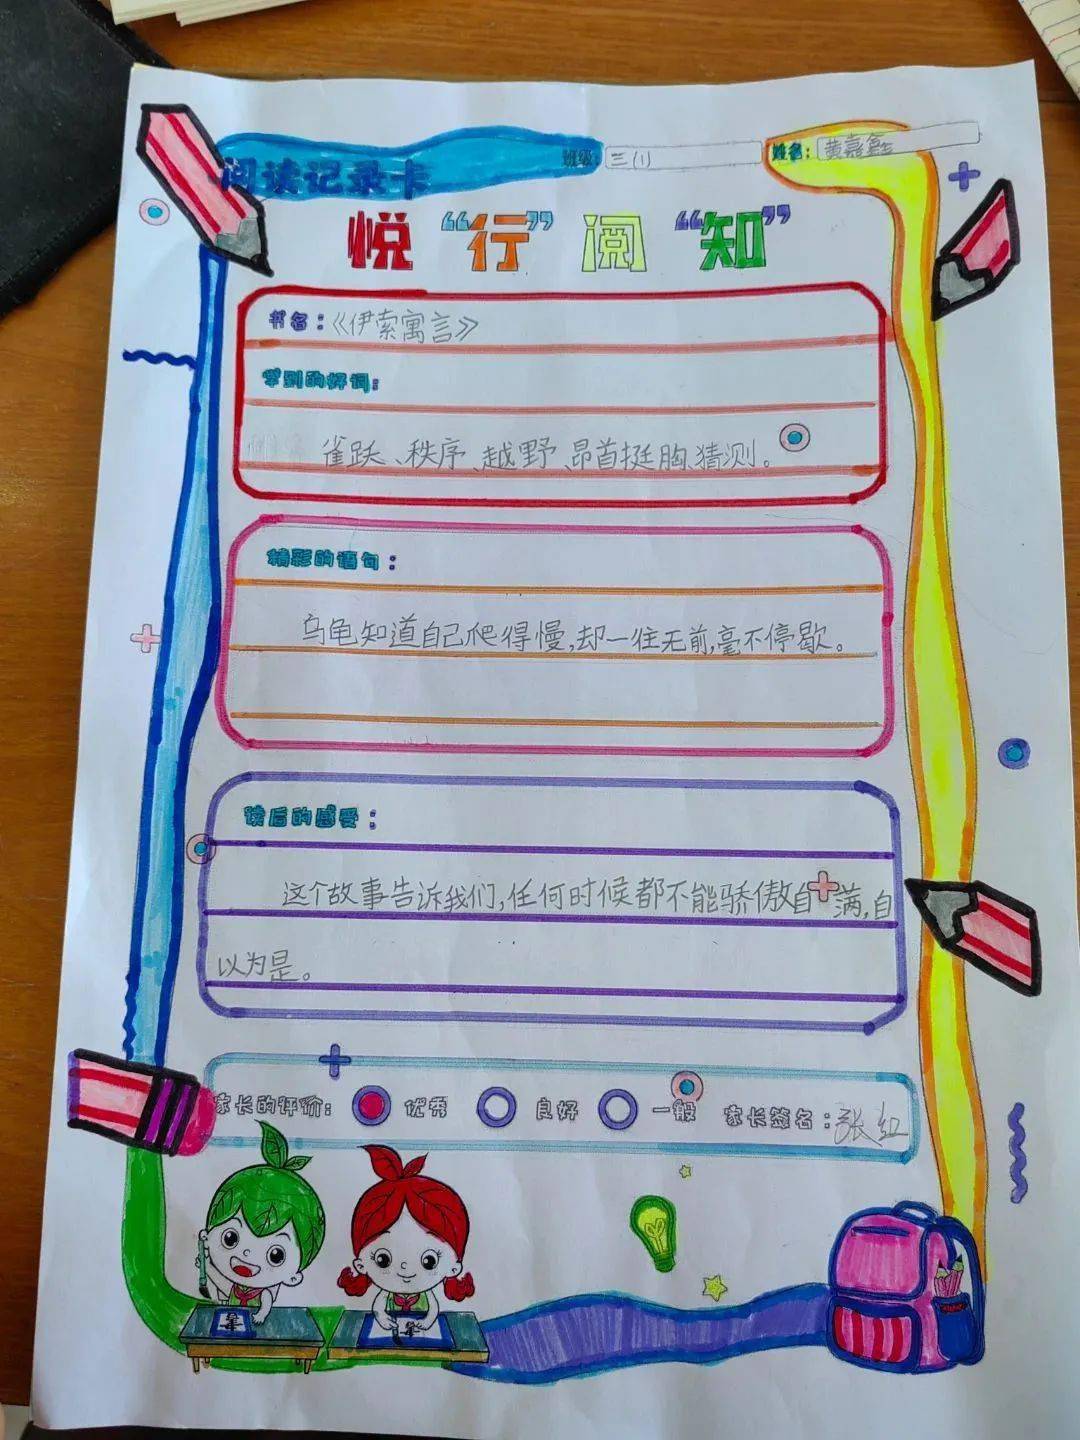 阅读记录卡 班级：三(1) 姓名：黄嘉鑫
悦“行”阅“知”
书名：《伊索寓言》
学到的好词：
雀跃、秩序、越野、昂首挺胸、猜测。
精彩的语句：
乌龟知道自己爬得慢,却一往无前,毫不停歇。
读后的感受：
这个故事告诉我们,任何时候都不能骄傲自满,自
以为是。
家长的评价： 优秀 良好 一般 家长签名：张红